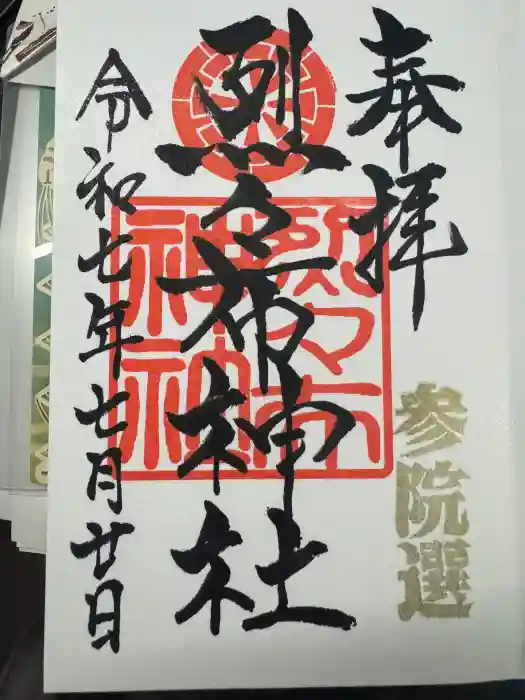 奉拝
参院選
烈々布神社
烈々布神社
令和七年七月廿日